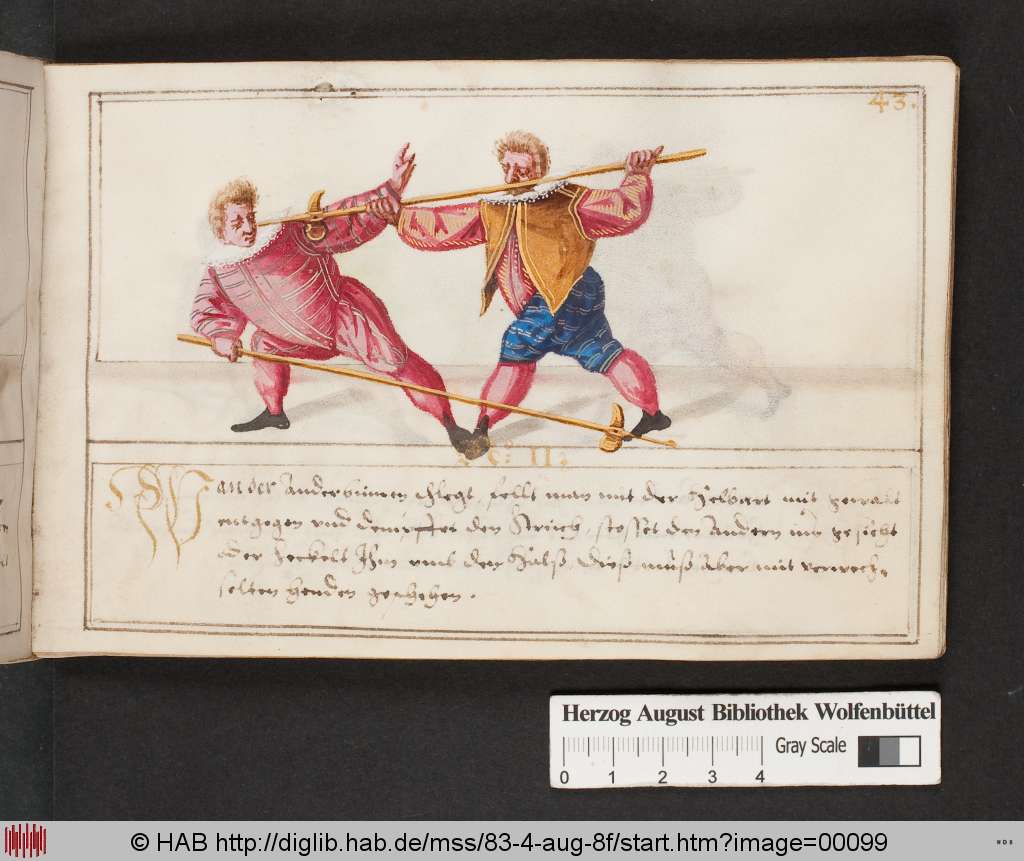 43.
C: II:
Wan der Ander hinein schlegt, felt man mit der Helbart mit gewalt
entgegen vnd dempffet den streich, stosset den Andern ins gesicht
oder heckelt Ihm vmb den Halß, dieß muß aber mit verwech-
selten henden geschehen.
Herzog August Bibliothek Wolfenbüttel
Gray Scale
0 1 2 3 4
© HAB http://diglib.hab.de/mss/83-4-aug-8f/start.htm?image=00099